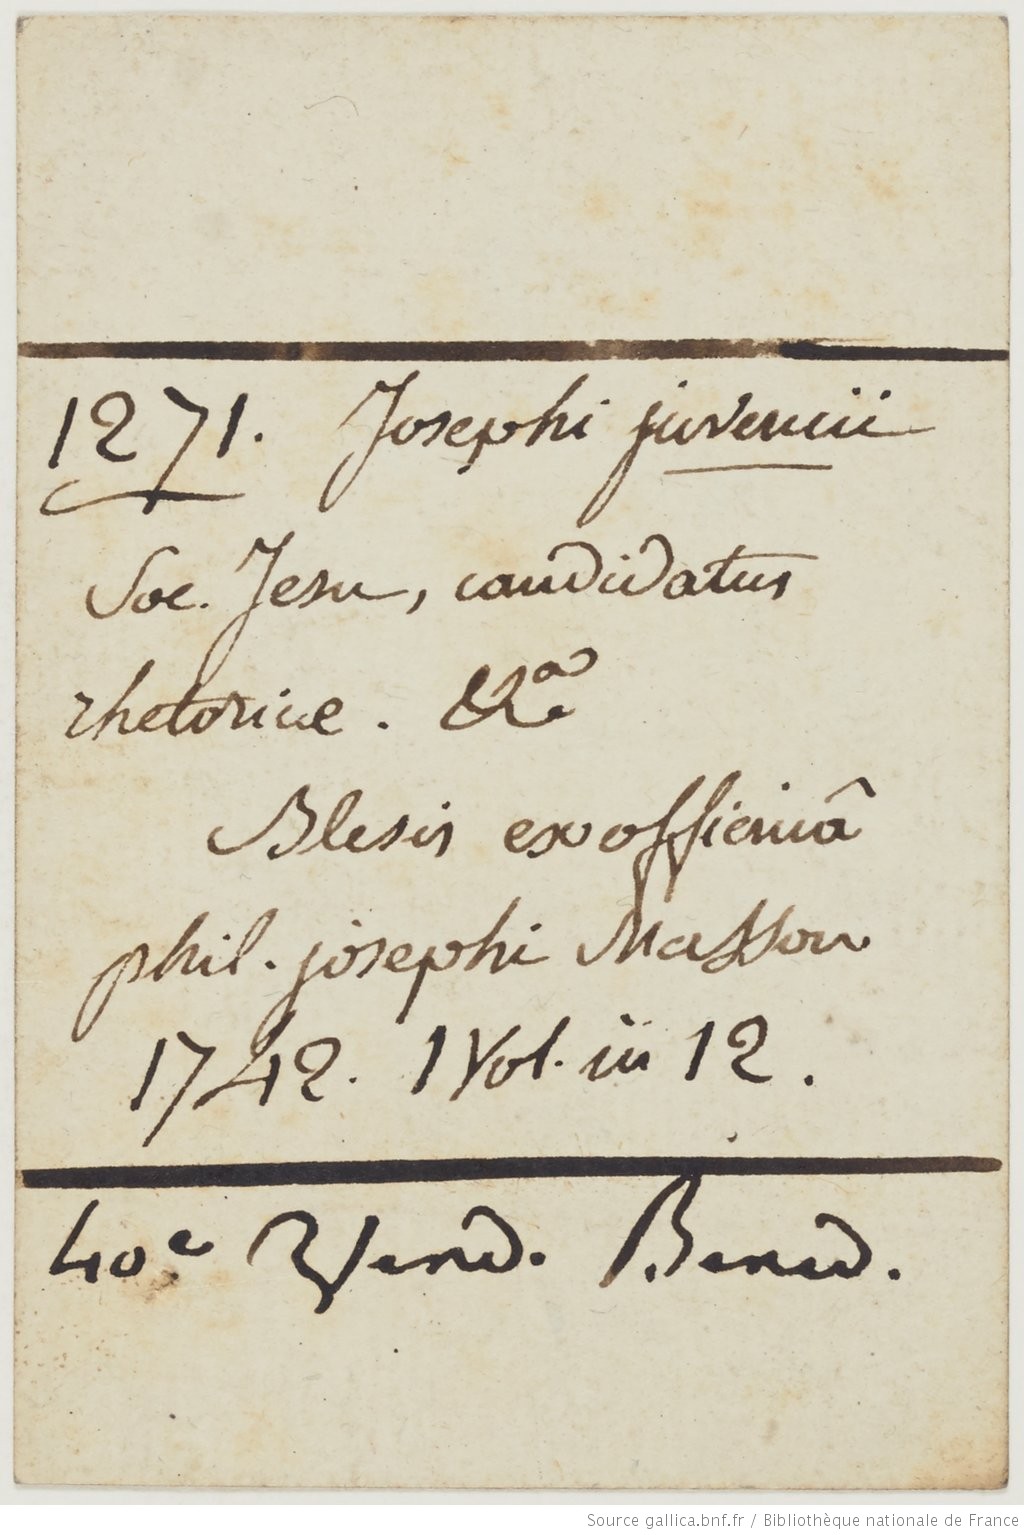 1271. Josephi juvencii
Soc. Jesu, candidatus
rhetoricae. &ca
Blesis ex officinâ
phil. josephi Masson
1742. 1 Vol. in 12.
40e Vend. Bened.
Source gallica.bnf.fr / Bibliothèque nationale de France